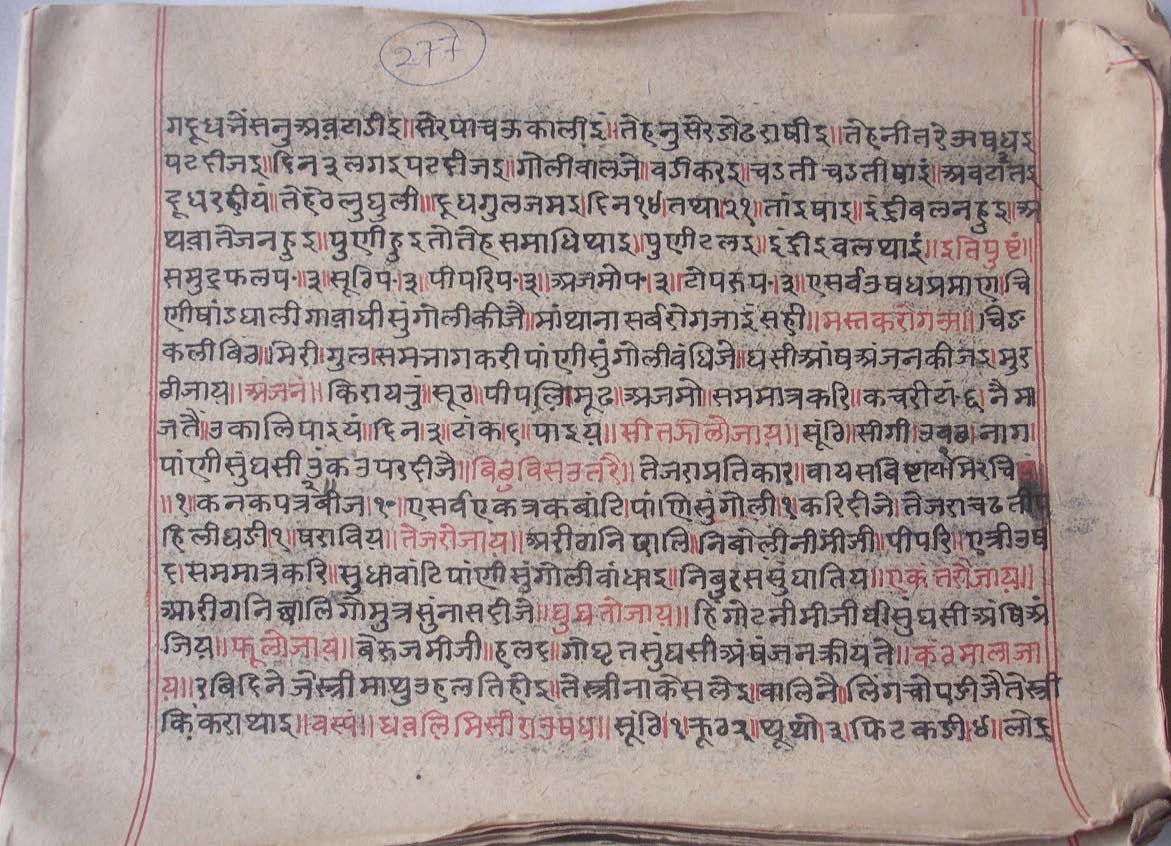 277
गदूधनेंसनुअवटाडीइ॥सेरपाचऊकालीइं॥तेहनुसेरडोढराषीइ॥तेहनीतरेअषधइ
पटदीजइ॥दिन३लगइपटदीजइ॥गोलीवालजे॥वडीकरइ॥चडतीचडतीषाइं॥अवटांतइ
दूधरहीयं॥तेहठेलुघुली॥दूधगुलजमइ॥दिन१४तथा२१॥तांइषाइ॥इंद्रीबलनहुइ॥अ
थवातेजनहुइ॥पुणीहुइतोतेहसमाधिथाइ॥पुणीटलइ॥इंद्रीइबलथाइं॥इतिपुष्टं॥
समुद्रफलप·॥३॥सूंठिप·३॥पीपरिप·३॥अजमोप·॥३॥टोपरुंप·३॥एसर्वउषधप्रमाणचि
णीषांडघालीगावाघीसुंगोलीकीजै॥मांथानासर्बरोगजाइंसही॥मस्तकरोगऽ॥चिड
कलीविठ॥मिरी॥गुल॥समभागकरीपांणीसुंगोलीबंधिजे॥घसीआंषअंजनकीजइ॥मुर
ठीजाय॥अंजनं॥किरायतु॥सूठ॥पीपलि॥मूढ॥अजमो॥सममात्रकरि॥कचरीटां·६॥नैमा
जतैं॥उकालिपाइयं॥दिन३॥टांक६॥पाइय॥सीतऊलोजाय॥सूंठि॥सीगी॥उबठ॥नाग
पांणीसुंघसीडुंकउपरदीजै॥बिछुविसउतरै॥तेजराप्रतिकार॥वायसविष्टायमिरचि
॥१॥कनकपत्रबीज॥१॥एसर्वएकत्रकबांटि॥पांणिसुंगोली॥१॥करिदीजे॥तेजराचढती
हिलीघडी१॥षराविय॥तेजरोजाय॥अरीठानिछालि॥निबोलीनीमीजी॥पीपरि॥एत्रीउष
६॥सममात्रकरि॥सुधावांटिपांणींसुंगोलीवांधाइ॥निबुरससुंघातिय॥एकतरौजाय॥
आरीठानिछालिगौमुत्रसुंनासदीजै॥घुघतोजाय॥हिंगोटनीमीजीघीसुघसीअंषिअं
जिय॥फूलोजाय॥बेरुजमीजी॥हलद॥गोघृतसुंघसीअंषंजनकीयते॥कंठमालजा
य॥रबिदिनेजेस्त्रीमाथुउहलतिहीइ॥तेस्त्रीनाकेसलेइ॥वालिनै॥लिंगचोपडीजैतेस्त्री
किंकराथाइ॥वस्यं॥धवलिमिसीराउषध॥सूंठि॥१॥कूठ२॥थूथो॥३॥फिटकडी॥४॥लोइ